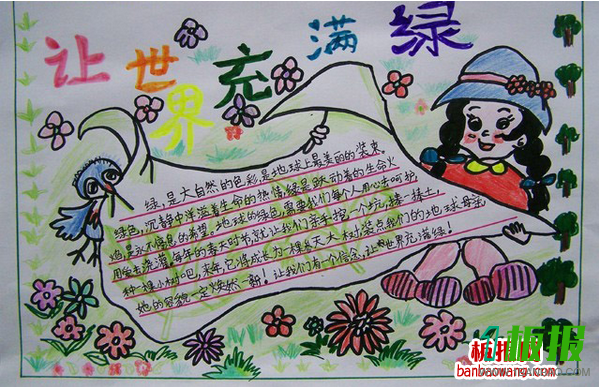 让世界充满绿
绿,是大自然的色彩,是地球上最美丽的装束。
绿色,沉静中洋溢着生命的热情,绿是跃动着的生命火
焰,是永不停息的希望。地球的绿色,需要我们每个人用心去呵护,
用爱去浇灌。每年的春天时节,就让我们亲手挖一个坑,捧一捧土,
种一棵小树吧,来年,它将成长为一棵参天大树,装点我们的地球母亲,
她的容貌一定焕然一新!让我们有一个信念,让世界充满绿!
板报网
banbaowang.com
板报